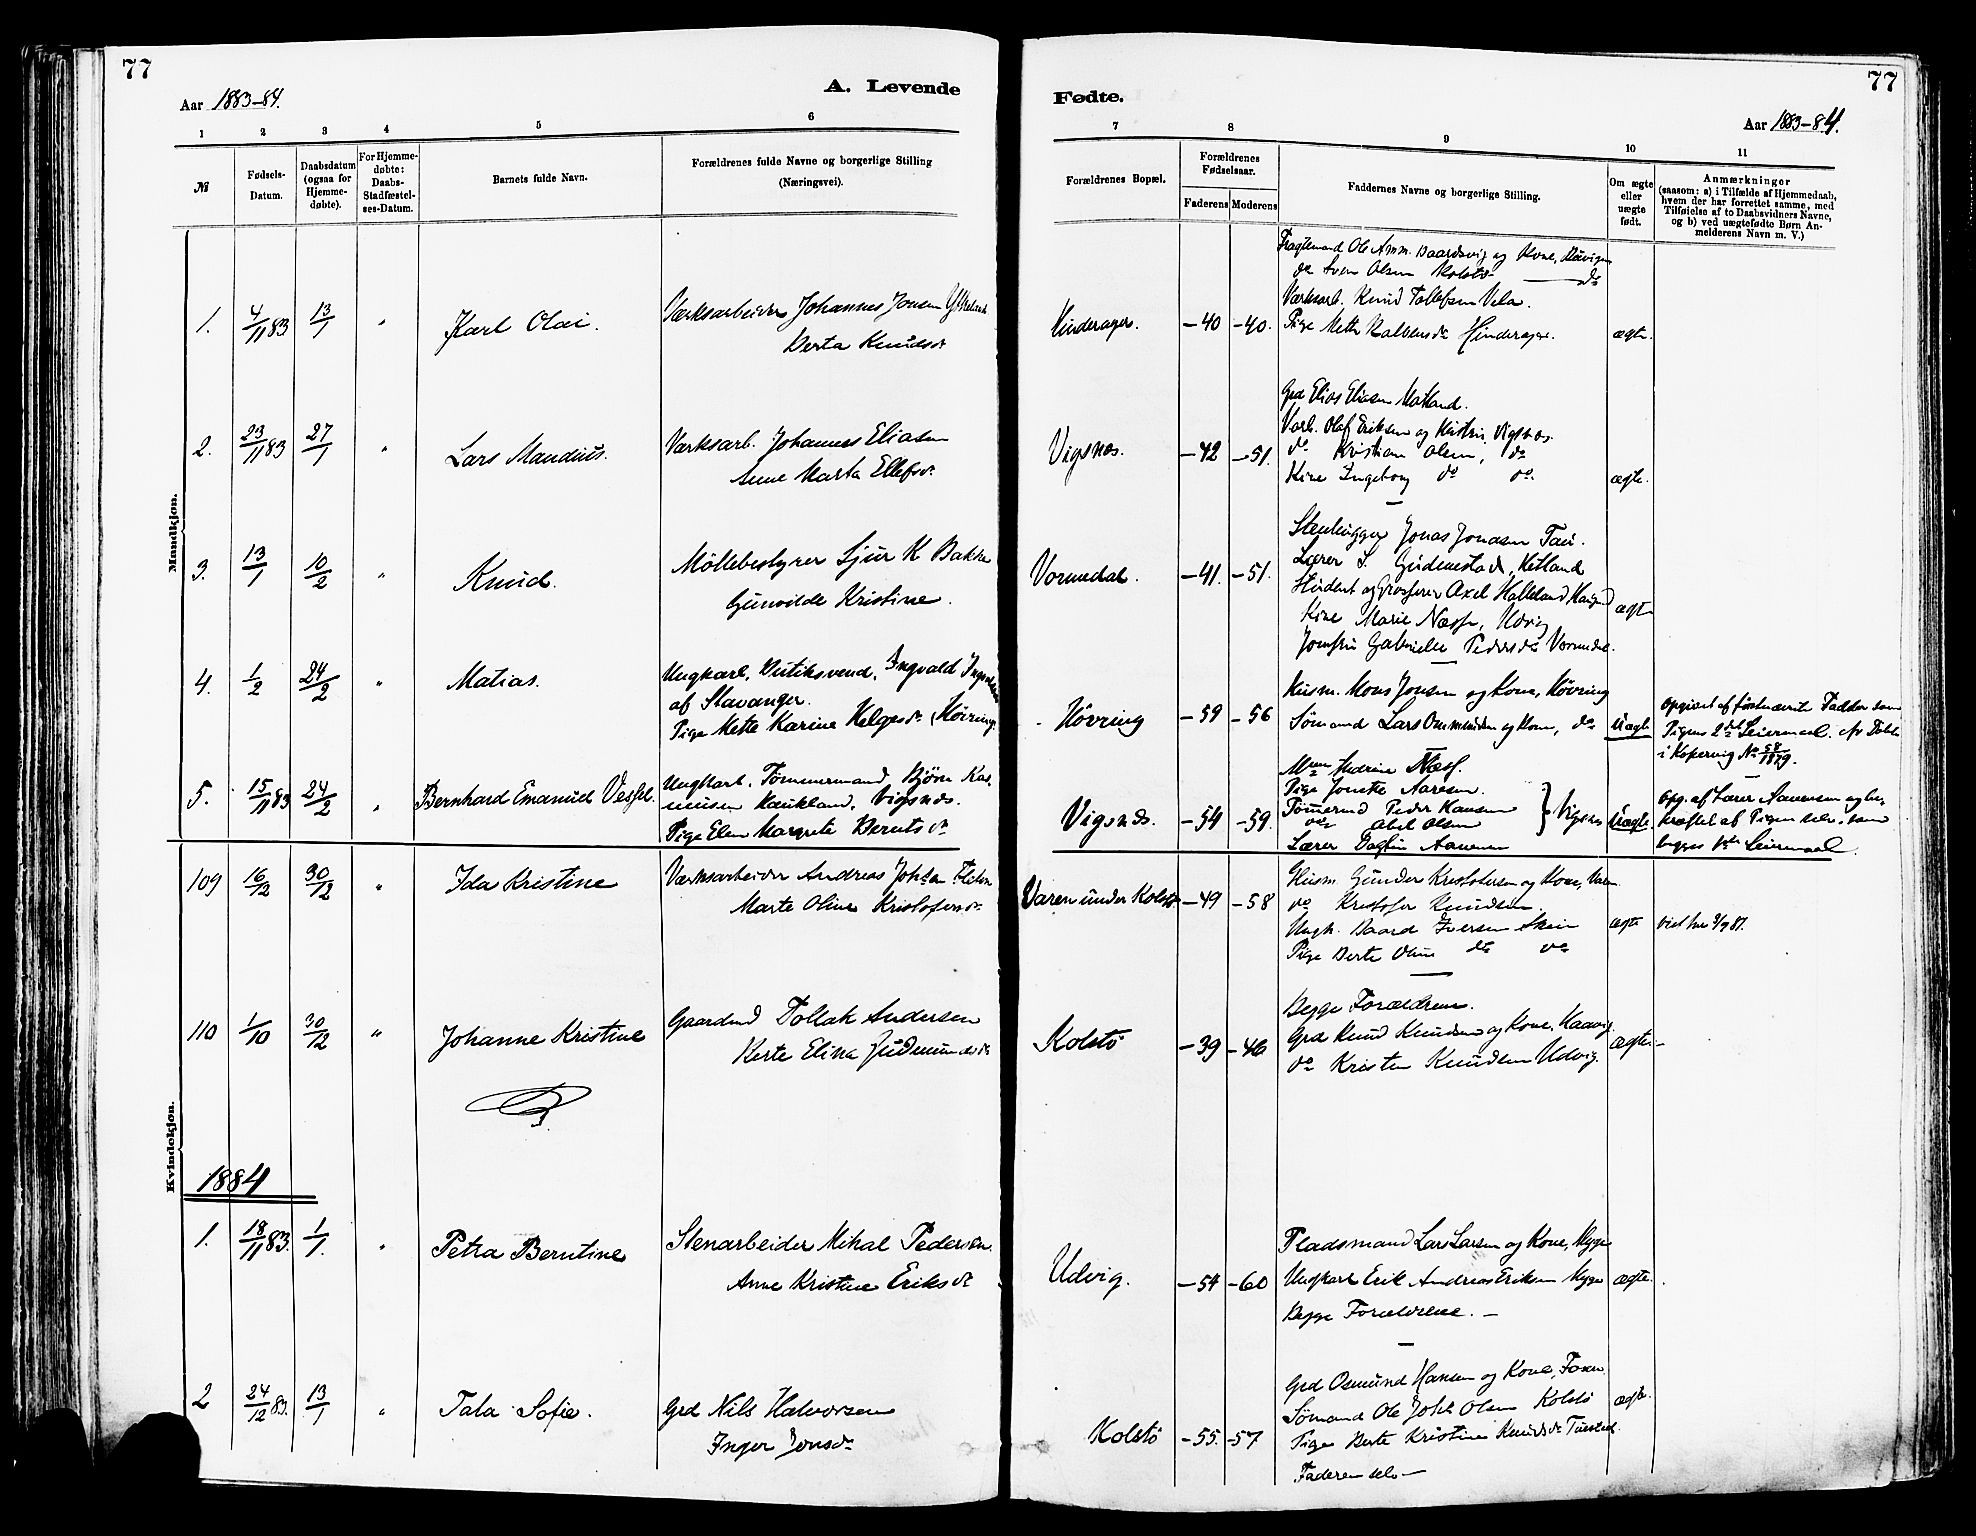 77
Aar 1883-84.
A. Levende
1 2 3 4 5 6
№
Fødsels-
Datum.
Daabsdatum
(ogsaa for
Hjemme-
døbte).
For Hjemme-
døbte:
Daabs-
Stadfæstel-
ses-Datum.
Barnets fulde Navn.
Forældrenes fulde Navne og borgerlige Stilling
(Næringsvei).
Mandkjøn.
1. 4/11 83 13/1 " Karl Olai. Værksarbeider Johannes Jonsen
Berta Knudsdr
2. 23/11 83 27/1 " Lars Mandius. Værksarb. Johannes Eliasen
Anne Marta Ellefsdr
3. 13/1 10/2 " Knud. Möllebestyrer Sjur K Bakke
Gunvilde Kristine.
4. 1/2 24/2 " Matias. Ungkarl, Butiksvend, Ingvald
af Stavanger.
Pige Mette Karine Helgesdr, Hövring.
5. 15/11 83 24/2 " Bernhard Emanuel Vessel. Ungkarl. Tømmermand Björn Ras-
mussen Haukland, Vigsnæs.
Pige Elen Margrete Berntsdr
Kvindekjøn.
109 16/12 30/12 " Ida Kristine Værksarbeider Andreas Johsen
Marte Oline Kristofersdr
110 1/10 30/12 " Johanne Kristine Gaardmd Tollak Andersen
Berte Elina Gudmundsdr
1884
1. 18/11 83. 1/1. " Petra Berntine Stenarbeider Mikal Pedersen.
Anne Kristine Eriksdr
2 24/12 83. 13/1 " Tala Sofie. Grd Nils Halvorsen
Inger Jonsdr
Fødte.
77
Aar 1883-84.
7 8 9 10 11
Forældrenes Bopæl.
Forældrenes
Fødselsaar.
Faderens Moderens
Faddernes Navne og borgerlige Stilling.
Om ægte
eller
uægte
født.
Anmærkninger
(saasom: a) i Tilfælde af Hjemmedaab,
hvem der har forrettet samme, med
Tilføielse af to Daabsvidners Navne,
og b) ved uægtefødte Børn An-
melderens Navn m. V.)
Fragtemand Ole Amm. Baardsvig og Kone,
do Sven Olsen Kolstö do
Værksarb. Knud Tollefsen Vela.
Hinderager. -40 -40. Pige Mette Hinderager. ægte.
Grd Elias Eliasen
Varb. Olaf Eriksen og Kistrin, Vigsnæs.
Vigsnæs. -42 -51. do Kristian Olsen, do
Kine Ingeborg do do. ægte.
Stenhugger Jonas Jonasen Tau.
Lærer S. Gudmestad, Ketland
Vormedal. -41. -51. Student og Grosserer Axel Halleland
Kine Marie Næsse, Udvig ægte
Jomfru Gabrielle Pedersdr Vormedal.
Husm. Mons Jonsen og Kone, Hövring
Hövring -59 -56 Sömand Lars Ommundsen og Kone, do Uægte
Opgivet af förstnævnte Fadder som
Pigens 2det Leiermaal. cfr Döbte
i Kopervig No 58/1879.
Mdm Andrine Næss.
Pige Aaresen
Tömmermd Peder Hansen
Vigsnæs. -54 -59. do Abel Olsen } Vigsnæs Uægte.
Lærer Aanensen
Opg. af Lærer Aanensen og be-
kræftet af Pigen selv, som
begges 1ste Leiermaal.
Husm Gunder Kristofersen og Kone, Varen
Varen under Kolstö -49 -58 do Kristofer Knudsen.
Ungk. Baard Iversen Skeie ægte
Pige Berte Oline do do
Begge Forældrene.
Grd Knud Knudsen og Kone,
Kolstö -39 -46 do Kristen Knudsen Udvig. ægte.
Pladsmand Lars Larsen og Kone, Mygge
Udvig. -54 -60 Ungkarl Erik Andreas Eriksen Mygge ægte.
Begge Forældrene.
Grd Osmund Hansen og Kone,
Sömand Ole Johs Olsen Kolstö ægte.
Kolstö -55. -57 Pige Berte Kristine Knudsdr
Faderen selv